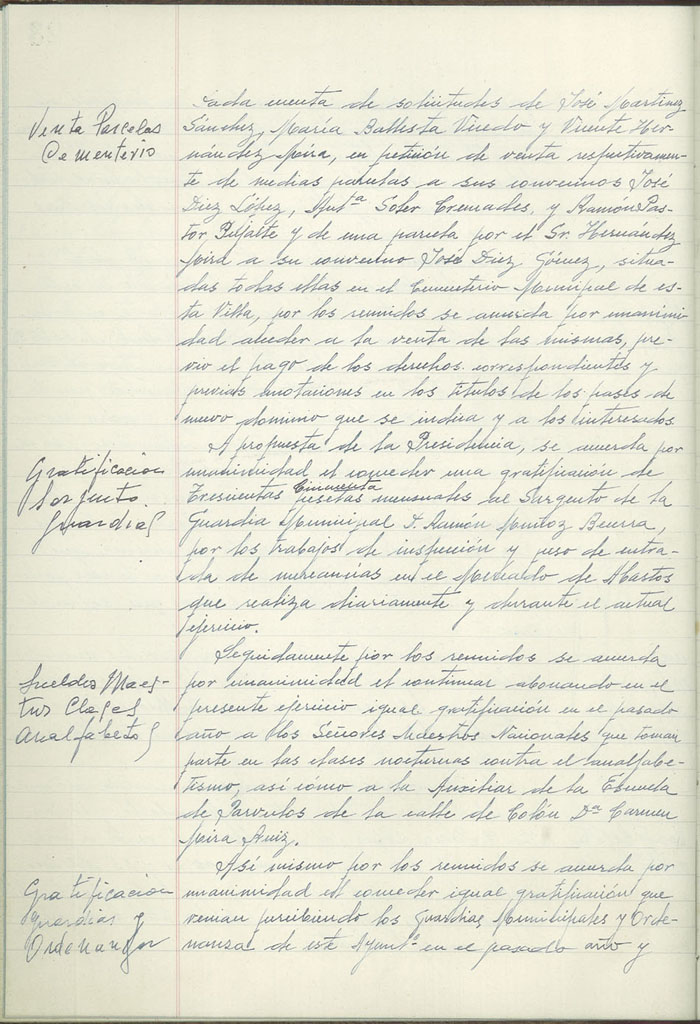 Venta Parcelas
Cementerio
Dada cuenta de solicitudes de José Martinez
Sánchez, María Ballesta Vicedo y Vicente Her-
nández Mira, en petición de venta respectivamen-
te de medias parcelas a sus convecinos José
Diez López, Antª Soler Cremades, y Ramón Pas-
tor Belfalte y de una parcela por el Sr. Hernández
Mira a su convecino José Diez Gómez, situa-
das todas ellas en el Cementerio Municipal de es-
ta Villa, por los reunidos se acuerda por unanimi-
dad acceder a la venta de las mismas, pre-
vio el pago de los derechos correspondientes y
previas anotaciones en los titulos de los pases de
nuevo dominio que se indica y a los interesados
Gratificacion
Sargento
Guardias
A propuesta de la Presidencia, se acuerda por
unanimidad el conceder una gratificación de
Trescientas Cincuenta pesetas mensuales al Sargento de la
Guardia Municipal D. Ramón Muñoz Becerra,
por los trabajos de inspección y peso de entra-
da de mercancias en el Mercado de Abastos
que realiza diariamente y durante el actual
ejercicio.
Sueldos Maes-
tros Clases
Analfabetos
Seguidamente por los reunidos se acuerda
por unanimidad el continuar abonando en el
presente ejercicio igual gratificación en el pasado
año a los Señores Maestros Nacionales que toman
parte en las clases nocturnas contra el analfabe-
tismo, así cómo a la Auxiliar de la Escuela
de Parvulos de la calle de Colón Dª Carmen
Mira Ruiz.
Gratificacion
guardias y
Ordenanza
Así mismo por los reunidos se acuerda por
unanimidad el conceder igual gratificación que
venian percibiendo los Guardias Municipales y Orde-
nanza de este Ayuntº en el pasado año y